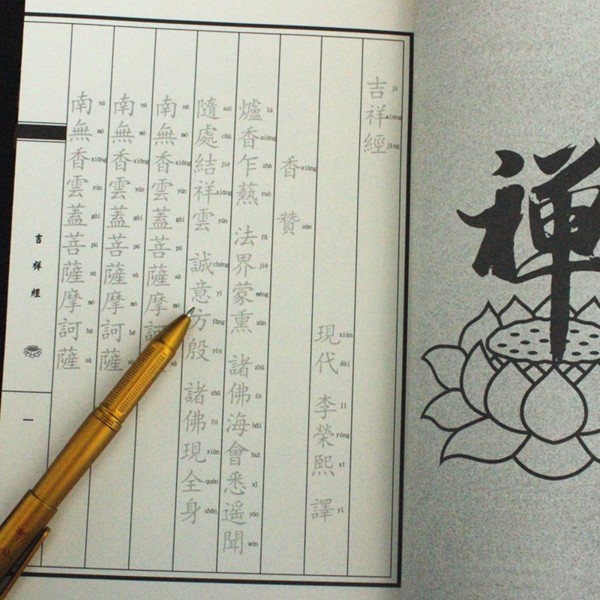 禪
吉祥經
現代 李榮熙 譯
香贊
爐香乍爇 法界蒙熏 諸佛海會悉遥聞
隨處結祥雲 誠意方殷 諸佛現全身
南無香雲蓋菩薩摩訶
南無香雲蓋菩薩摩訶薩
南無香雲蓋菩薩摩訶薩
吉祥經
一